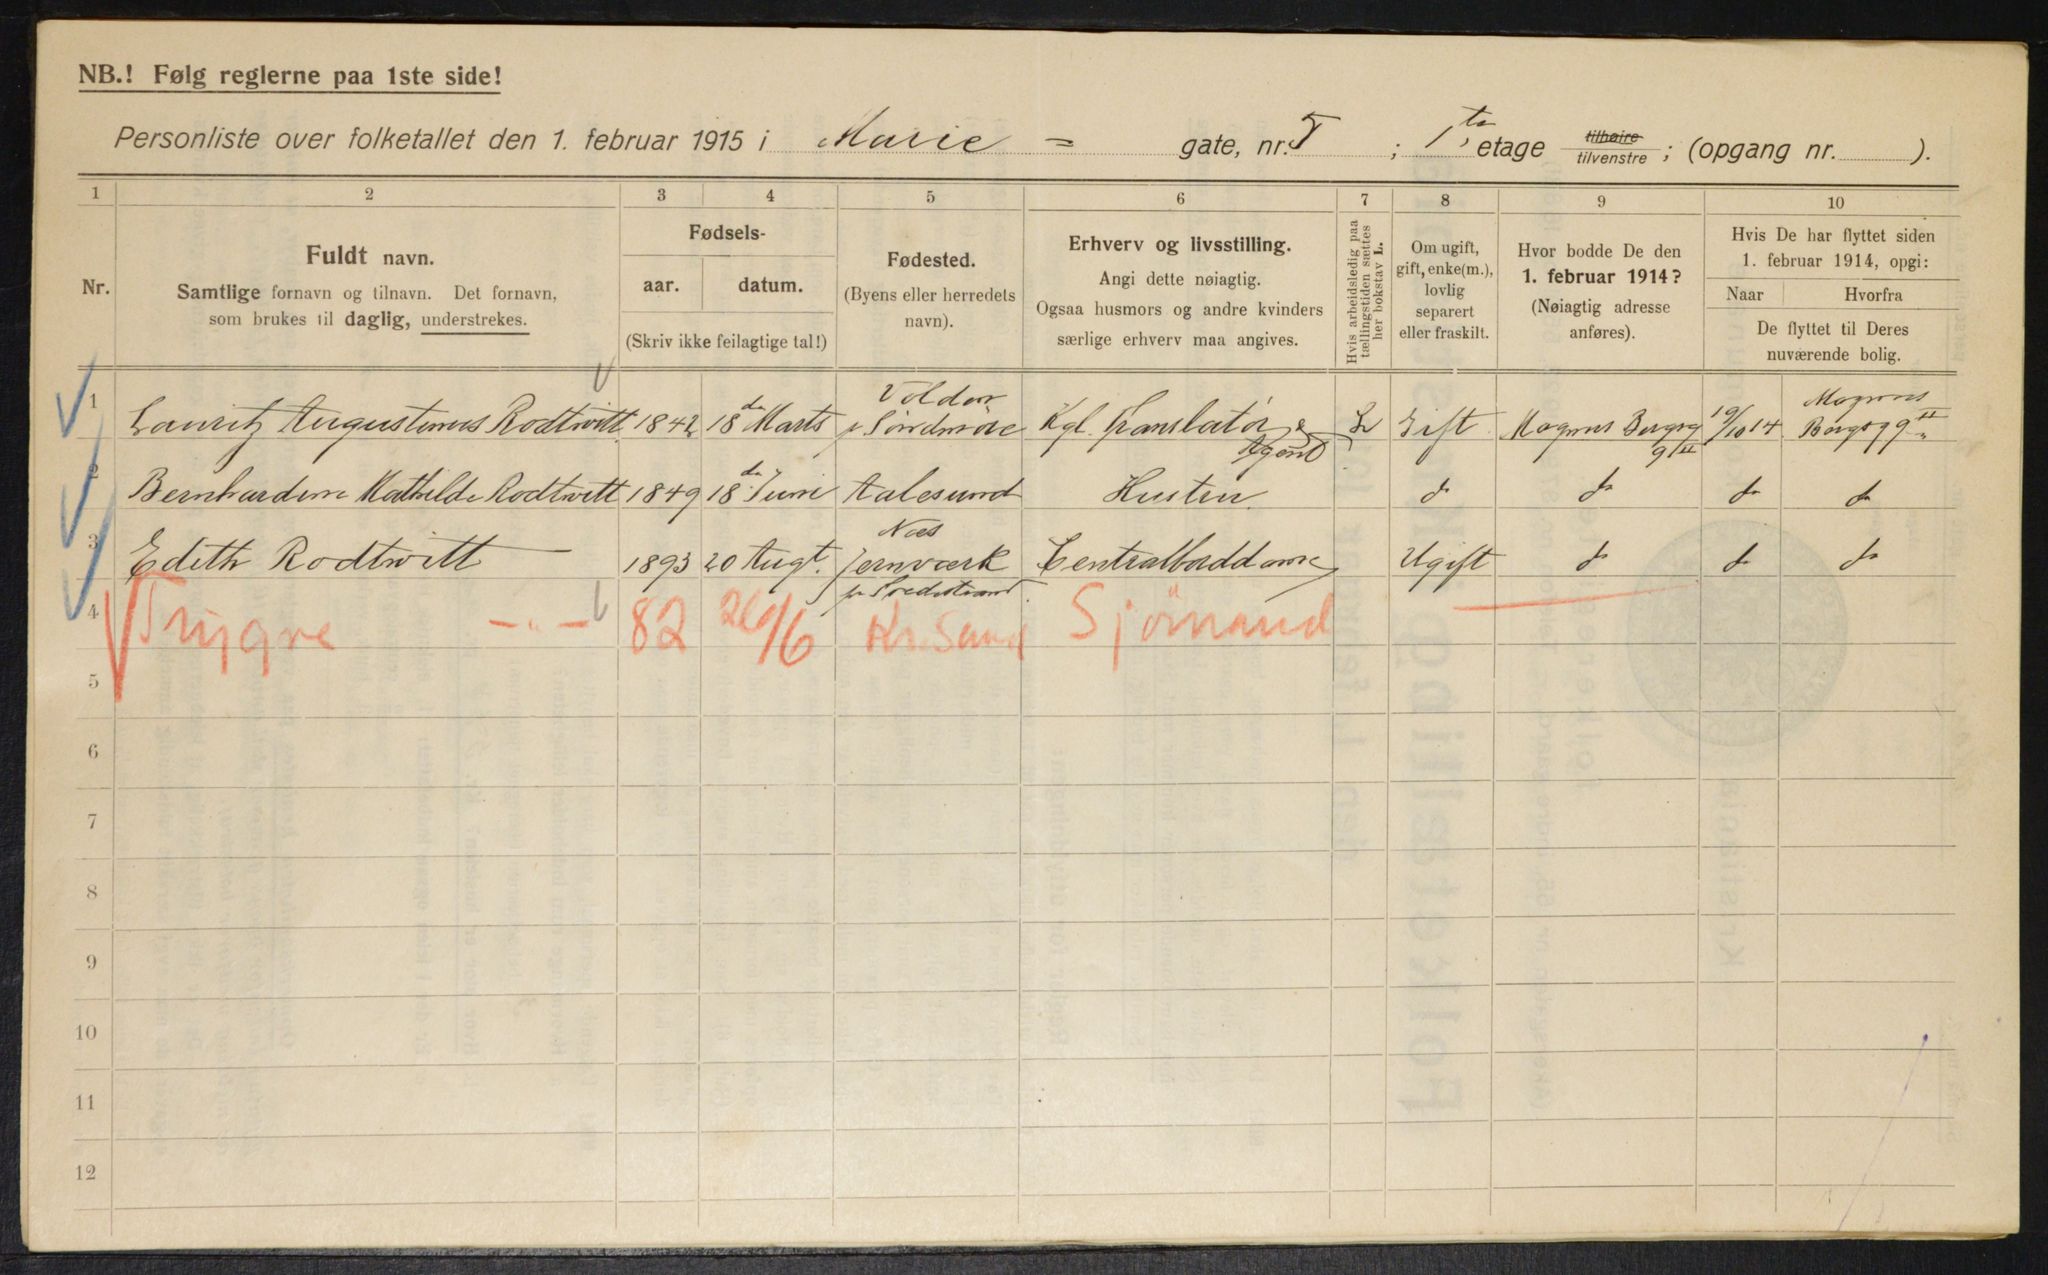 NB.! Følg reglerne paa 1ste side!
Personliste over folketallet den 1. februar 1915 i Marie = gate, nr. 5 ; 1ste etage tilhøire tilvenstre ; (opgang nr. ).
1 2 3 4 5 6 7 8 9 10
Nr.
Fuldt navn.
Samtlige fornavn og tilnavn. Det fornavn,
som brukes til daglig, understrekes.
Fødsels-
aar. datum.
(Skriv ikke feilagtige tal!)
Fødested.
(Byens eller herredets
navn).
Erhverv og livsstilling.
Angi dette nøiagtig.
Ogsaa husmors og andre kvinders
særlige erhverv maa angives.
Hvis arbeidsledig paa
tællingstiden sættes
her bokstav L.
Om ugift,
gift, enke(m.),
lovlig
separert
eller fraskilt.
Hvor bodde De den
1. februar 1914?
(Nøiagtig adresse
anføres).
Hvis De har flyttet siden
1. februar 1914, opgi:
Naar Hvorfra
De flyttet til Deres
nuværende bolig.
1 Lauritz Augustinus Rodtwitt 1842 18de Marts Volden p Søndmøre Kgl. Translatør & Agent L Gift Magnus Bergsg 9II 19/10 14 Magnus Bergsg 9II
2 Bernhardine Mathilde Rodtwitt 1849 18de Juni Aalesund Hustru do do do do
3 Edith Rodtwitt 1893 20 Augt. Næs Jernværk pr Tvedestrand Centralborddame Ugift do do do
4 Trygve -"- 82 26/6 Kr.Sand Sjömand
5
6
7
8
9
10
11
12